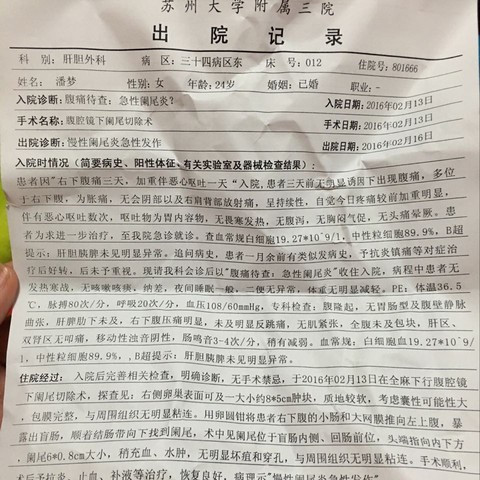 苏州大学附属三院
出院记录
科 别: 肝胆外科 病 区: 三十四病区东 床 号: 012 住院号: 801666
姓名: 潘梦 性别: 女 年龄: 24岁 婚姻: 已婚 职业: -
入院诊断: 腹痛待查: 急性阑尾炎? 入院日期: 2016年02月13日
手术名称: 腹腔镜下阑尾切除术 手术日期: 2016年02月13日
出院诊断: 慢性阑尾炎急性发作 出院日期: 2016年02月16日
入院时情况（简要病史、阳性体征、有关实验室及器械检查结果）:
患者因"右下腹痛三天, 加重伴恶心呕吐一天"入院, 患者三天前无明显诱因下出现腹痛, 多位
于右下腹, 为胀痛, 无会阴部以及右肩背部放射痛, 呈持续性, 自觉今日疼痛较前加重明显,
伴有恶心呕吐数次, 呕吐物为胃内容物, 无畏寒发热, 无腹泻, 无胸闷气促, 无头痛晕厥。患
者为求进一步治疗, 至我院急诊就诊。查血常规白细胞19.27*10^9/1, 中性粒细胞89.9%, B超
提示: 肝胆胰脾未见明显异常。追问病史, 患者一月余前有类似发病史, 予抗炎镇痛等对症治
疗后好转, 后未予重视。现请我科会诊后以"腹痛待查: 急性阑尾炎"收住入院, 病程中患者无
发热寒战, 无咳嗽咳痰, 纳差, 夜间睡眠一般, 二便无异常, 体重无明显减轻。PE: 体温36.5
℃, 脉搏80次/分, 呼吸20次/分, 血压108/60mmHg, 专科检查: 腹隆起, 无胃肠型及腹壁静脉
曲张, 肝脾肋下未及, 右下腹压痛明显, 未及明显反跳痛, 无肌紧张, 全腹未及包块, 肝区、
双肾区无叩痛, 移动性浊音阴性, 肠鸣音3-4次/分, 稍有减弱。血常规: 白细胞血19.27*10^9/
1, 中性粒细胞89.9%, B超提示: 肝胆胰脾未见明显异常。
住院经过: 入院后完善相关检查, 明确诊断, 无手术禁忌, 于2016年02月13日在全麻下行腹腔镜
下阑尾切除术, 探查见: 右侧卵巢表面可及一大小约8*5cm肿块, 质地较软, 考虑囊性可能性大
, 包膜完整, 与周围组织无明显粘连。用卵圆钳将患者右下腹的小肠和大网膜推向左上腹, 暴
露出盲肠, 顺着结肠带向下找到阑尾, 术中见阑尾位于盲肠内侧、回肠前位, 头端指向内下方
, 阑尾6*0.8cm大小, 稍充血、水肿, 无明显坏疽和穿孔, 与周围组织无明显粘连。手术顺利,
术后予抗炎、止血、补液等治疗, 恢复良好, 病理示"慢性阑尾炎急性发作"